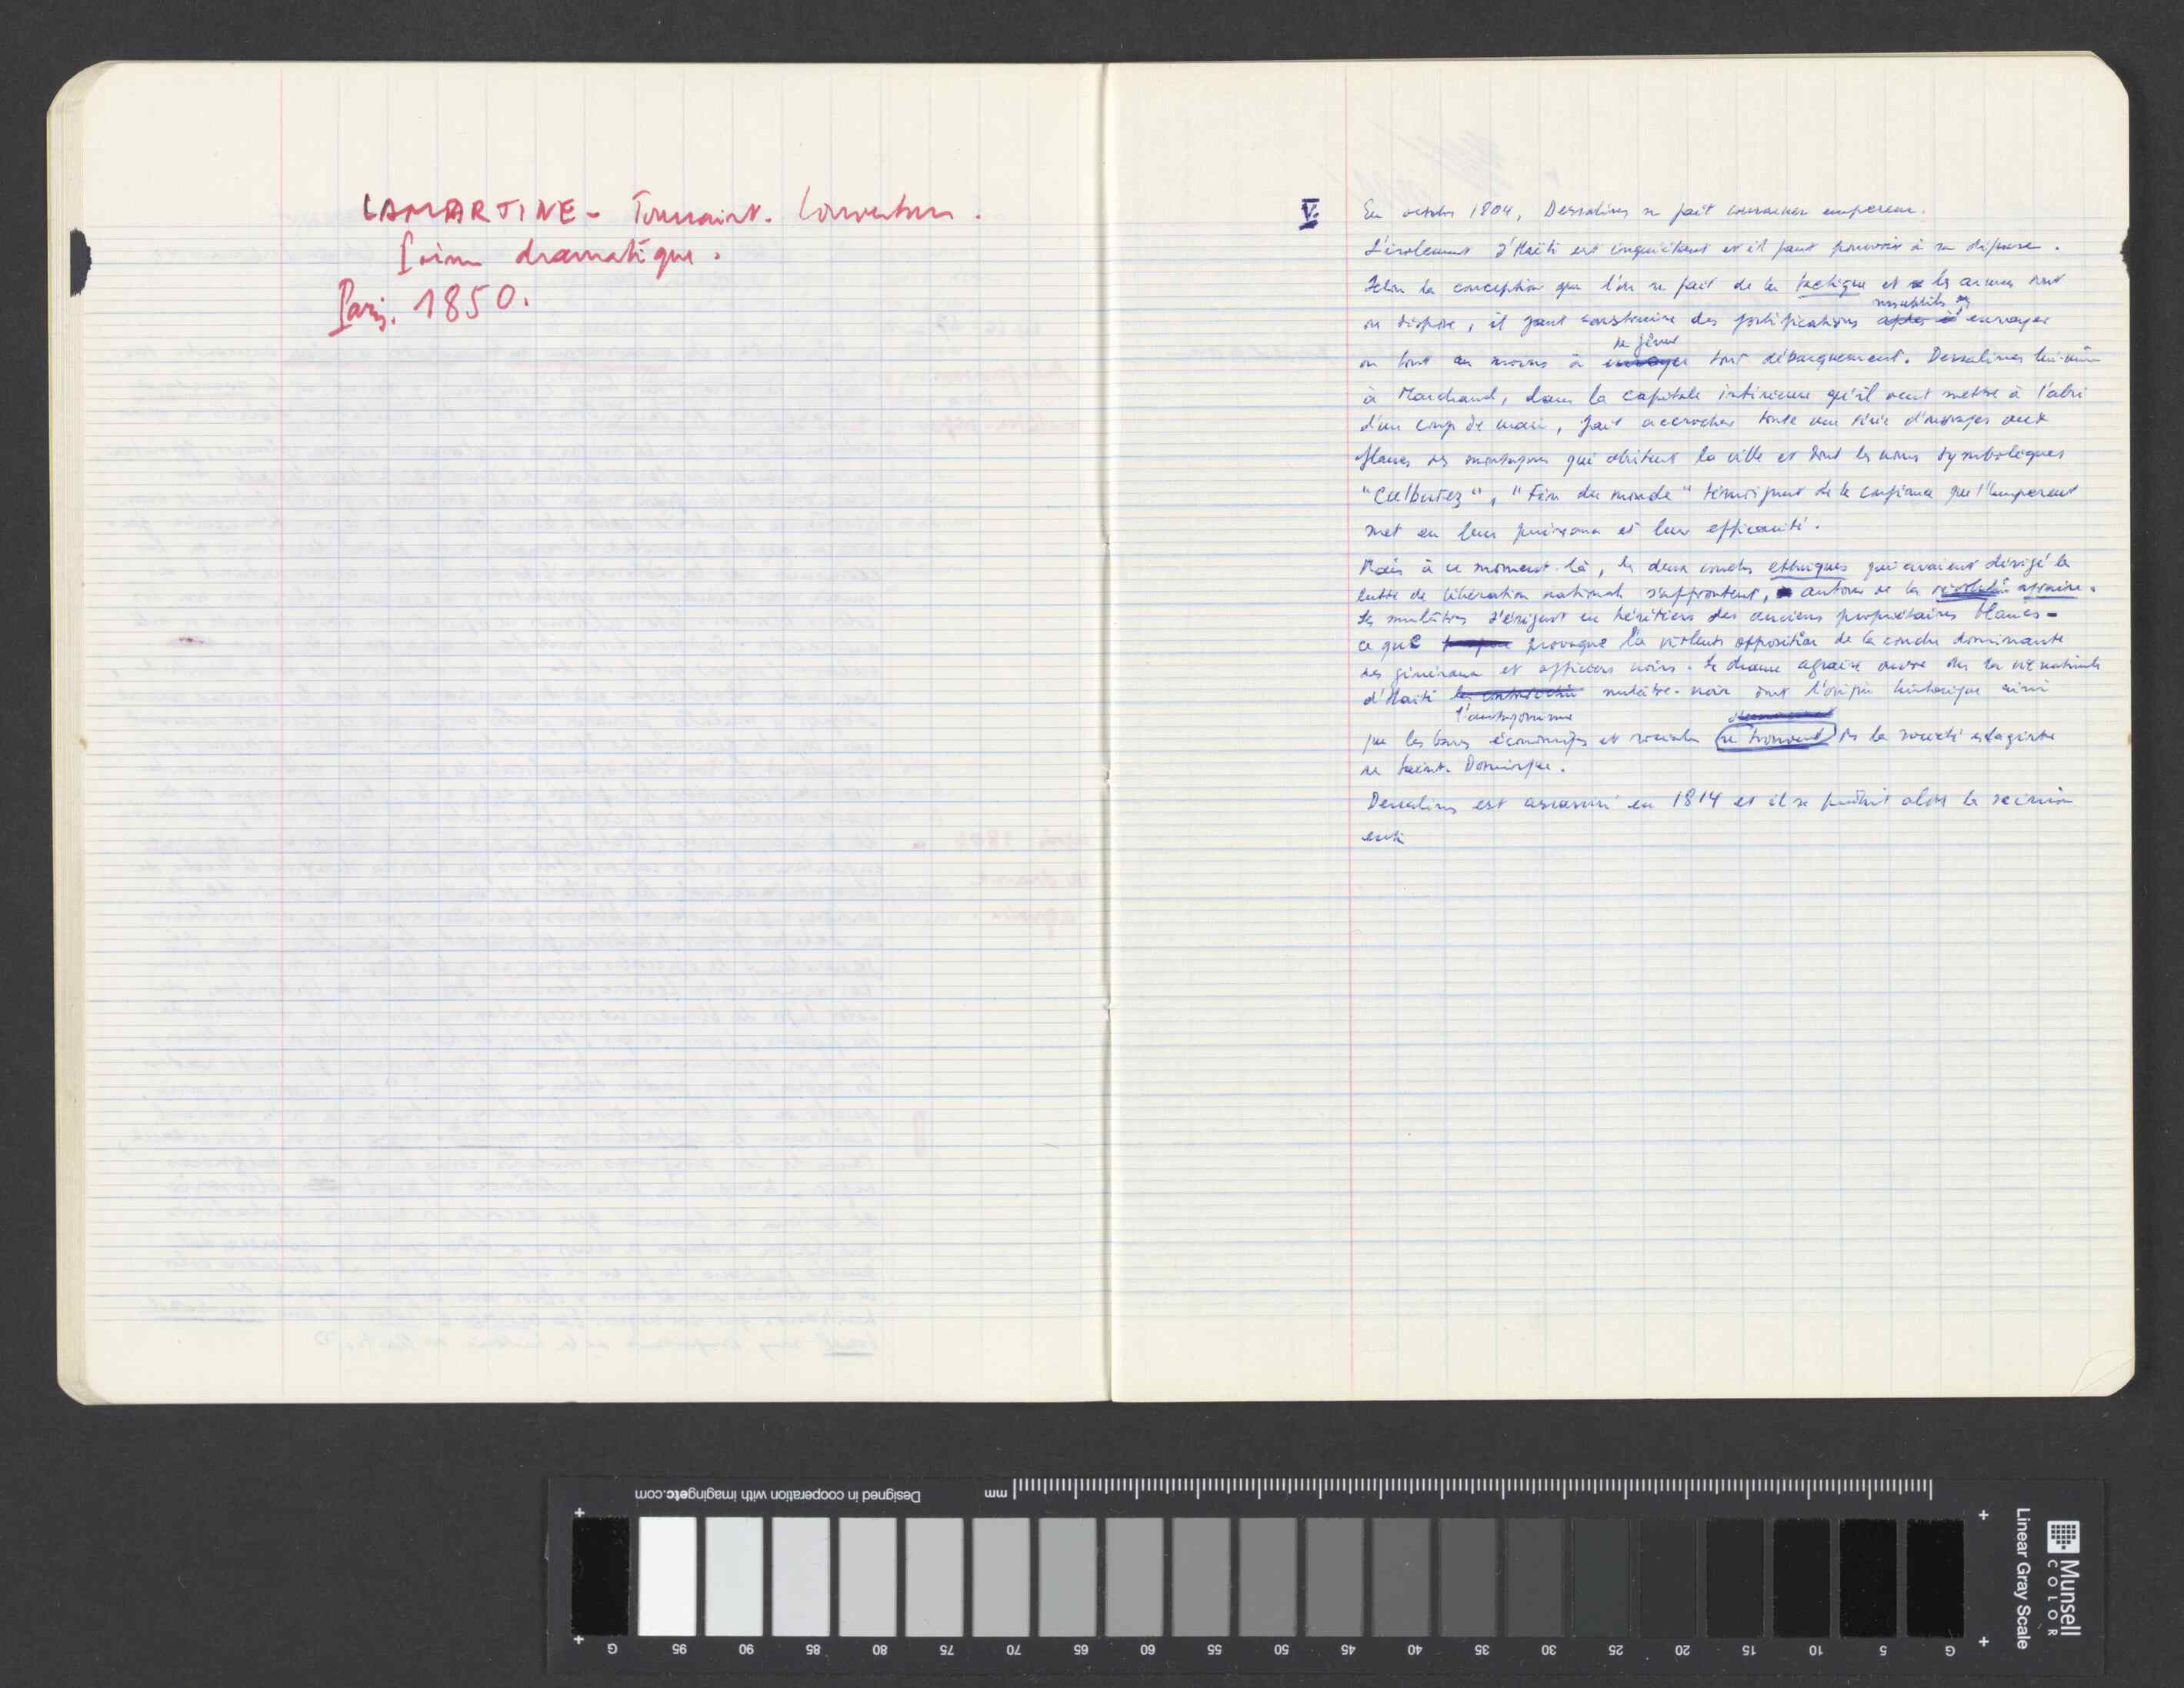 LAMARTINE - Toussaint. Louverture.
Poème dramatique.
Paris. 1850.
V. En octobre 1804, Dessalines se fait couronner empereur.
L'isolement d'Haïti est inquiétant et il faut pourvoir à sa défense.
Selon la conception que l'on se fait de la tactique et les armes dont
susceptibles
on dispose, il faut construire des fortifications envoyer
de gêner
ou tout au moins à tout débarquement. Dessalines lui-même
à Marchand, dans la capitale intérieure qu'il veut mettre à l'abri
d'un coup de main, fait accrocher toute une série d'ouvrages aux
flancs des montagnes qui abritent la ville et dont les noms symboliques
"Culbutez", "Fin du monde" témoignent de la confiance que l'empereur
met en leur puissance et leur efficacité.
Mais à ce moment-là, les deux couches ethniques qui avaient dirigé la
lutte de libération nationale s'affrontent, autour de la révolution agraire.
Les mulâtres s'érigent en héritiers des anciens propriétaires blancs -
ce que provoque la violente opposition de la couche dominante
des généraux et officiers noirs. Le drame agraire ouvre la vie nationale
d'Haïti la contradiction mulâtre-noir dont l'origine historique ainsi
l'antagonisme
que les bases économiques et sociales se trouvent ds la société esclagiste
de Saint-Domingue.
Dessalines est assassiné en 1814 et il se produit alors la scission
entre
Designed in cooperation with imagingetc.com
mm
Munsell
COLOR
Linear Gray Scale
G 95 90 85 80 75 70 65 60 55 50 45 40 35 30 25 20 15 10 5 G